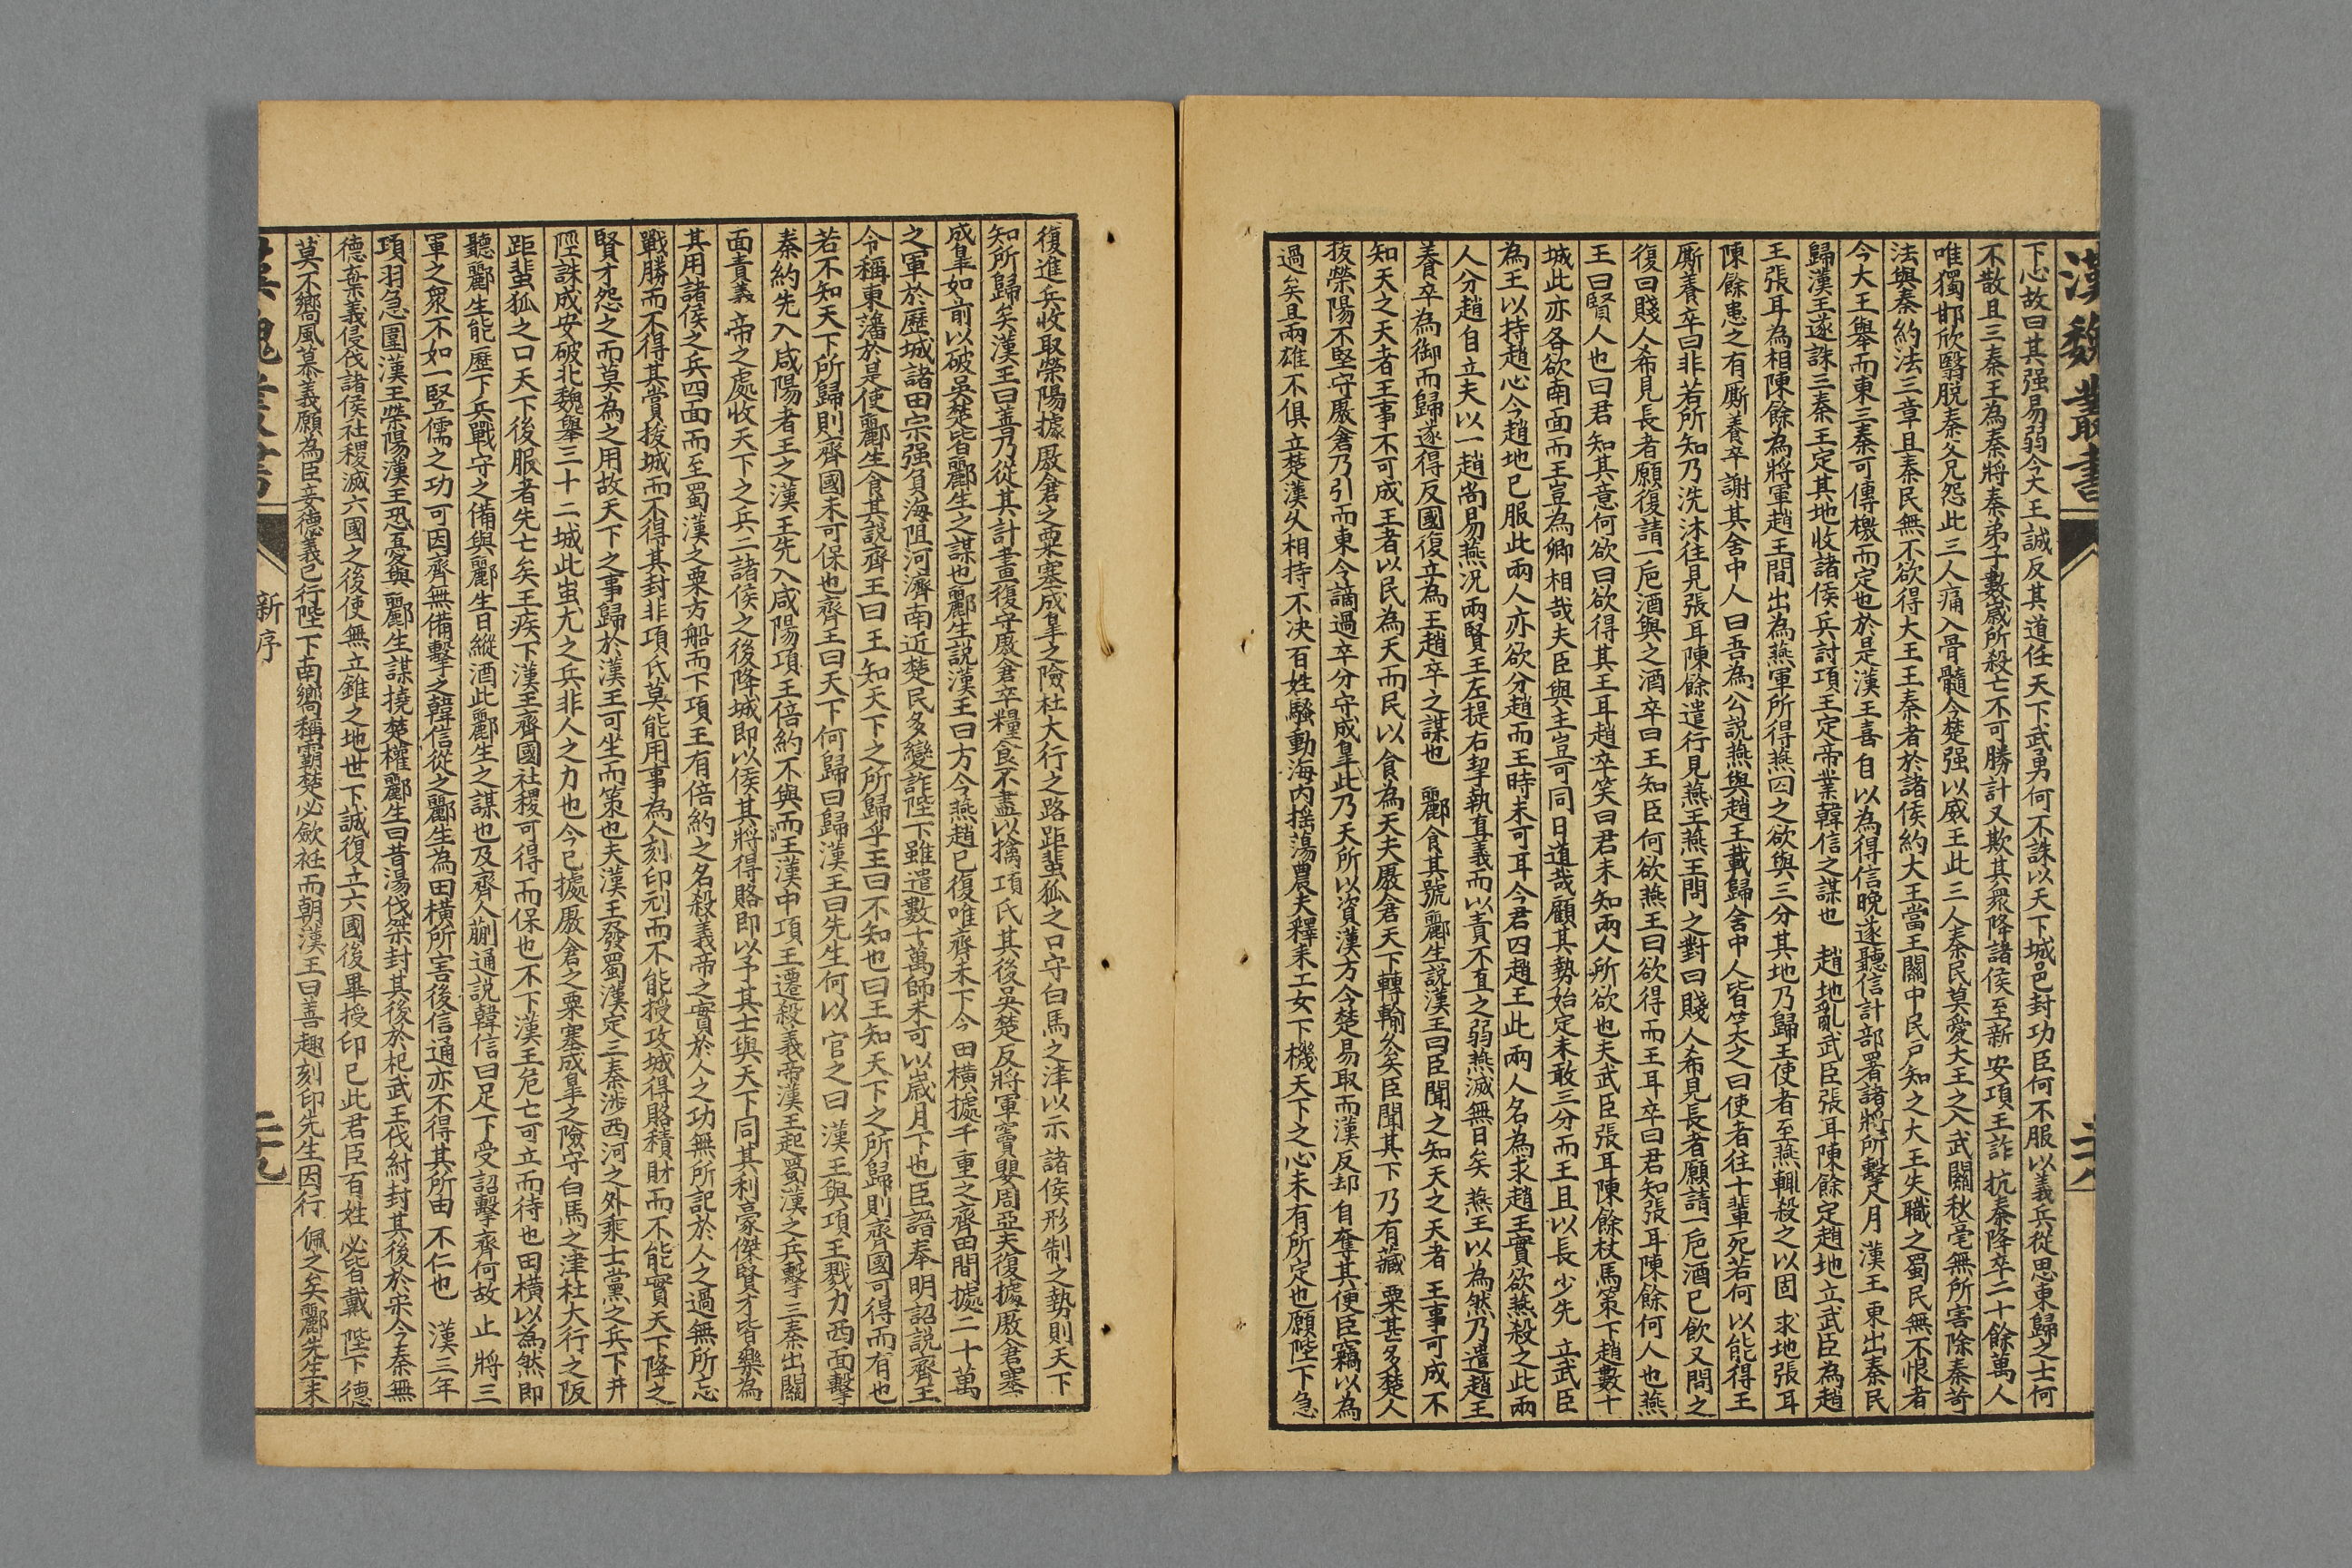 漢魏叢書
下心故曰其强易弱今大王誠反其道任天下武勇何不誅以天下城邑封功臣何不服以義兵從思東歸之士何
不散且三秦王為秦將秦弟子數歲所殺亡不可勝計又欺其衆降諸侯至新安項王詐抗秦降卒二十餘萬人
唯獨邯欣翳脱秦父兄怨此三人痛入骨髓今楚强以威王此三人秦民莫愛大王之入武關秋毫無所害除秦苛
法與秦約法三章且秦民無不欲得大王王秦者於諸侯約大王當王關中民戶知之大王失職之蜀民無不恨者
今大王舉而東三秦可傳檄而定也於是漢王喜自以為得信晚遂聽信計部署諸將所擊八月漢王東出秦民
歸漢王遂誅三秦王定其地收諸侯兵討項王定帝業韓信之謀也 趙地亂武臣張耳陳餘定趙地立武臣為趙
王張耳為相陳餘為將軍趙王間出為燕軍所得燕囚之欲與三分其地乃歸王使者至燕輒殺之以固求地張耳
陳餘患之有厮養卒謝其舍中人曰吾為公説燕與趙王載歸舍中人皆笑之曰使者往十輩死若何以能得王
厮養卒曰非若所知乃洗沐往見張耳陳餘遣行見燕王燕王問之對曰賤人希見長者願請一巵酒已飲又問之
復曰賤人希見長者願復請一巵酒與之酒卒曰王知臣何欲燕王曰欲得而王耳卒曰君知張耳陳餘何人也燕
王曰賢人也曰君知其意何欲曰欲得其王耳趙卒笑曰君未知兩人所欲也夫武臣張耳陳餘杖馬策下趙數十
城此亦各欲南面而王豈為卿相哉夫臣與主豈可同日道哉顧其勢始定未敢三分而王且以長少先立武臣
為王以持趙心今趙地已服此兩人亦欲分趙而王時未可耳今君囚趙王此兩人名為求趙王實欲燕殺之此兩
人分趙自立夫以一趙尚易燕况兩賢王左提右挈執直義而以責不直之弱燕滅無日矣燕王以為然乃遣趙王
養卒為御而歸遂得反國復立為王趙卒之謀也 酈食其號酈生説漢王曰臣聞之知天之天者王事可成不
知天之天者王事不可成王者以民為天而民以食為天夫厫倉天下轉輸久矣臣聞其下乃有藏粟甚多楚人
拔榮陽不堅守厫倉乃引而東今謫過卒分守成臯此乃天所以資漢方今楚易取而漢反却自奪其便臣竊以為
過矣且兩雄不俱立楚漢久相持不决百姓騷動海内摇蕩農夫釋耒工女下機天下之心未有所定也願陛下急
復進兵收取滎陽據厫倉之粟塞成臯之險杜大行之路距蜚狐之口守白馬之津以示諸侯形制之勢則天下
知所歸矣漢王曰善乃從其計畫復守厫倉卒糧食不盡以擒項氏其後吳楚反將軍竇嬰周亞夫復據厫倉塞
成臯如前以破吳楚皆酈生之謀也酈生説漢王曰方今燕趙已復唯齊未下今田横據千重之齊田間據二十萬
之軍於歷城諸田宗强負海阻河濟南近楚民多變詐陛下雖遣數十萬師未可以歲月下也臣請奉明詔説齊王
令稱東藩於是使酈生食其説齊王曰王知天下之所歸乎王曰不知也曰王知天下之所歸則齊國可得而有也
若不知天下所歸則齊國未可保也齊王曰天下何歸曰歸漢王曰先生何以官之曰漢王與項王戮力西面擊
秦約先入咸陽者王之漢王先入咸陽項王倍約不與而王漢中項王遷殺義帝漢王起蜀漢之兵擊三秦出關
面責義帝之處收天下之兵二諸侯之後降城即以侯其將得賂即以予其士與天下同其利豪傑賢才皆樂為
其用諸侯之兵四面而至蜀漢之粟方船而下項王有倍約之名殺義帝之實於人之功無所記於人之過無所忘
戰勝而不得其賞拔城而不得其封非項氏莫能用事為人刻印刓而不能授攻城得賂積財而不能賞天下降之
賢才怨之而莫為之用故天下之事歸於漢王可坐而策也夫漢王發蜀漢定三秦涉西河之外乘士黨之兵下井
陘誅成安破北魏舉三十二城此蚩尤之兵非人之力也今已據厫倉之粟塞成臯之險守白馬之津杜大行之阪
距蜚狐之口天下後服者先亡矣王疾下漢王齊國社稷可得而保也不下漢王危亡可立而待也田横以為然即
聽酈生能歷下兵戰守之備與酈生日縱酒此酈生之謀也及齊人蒯通説韓信曰足下受詔擊齊何故止將三
軍之衆不如一竪儒之功可因齊無備擊之韓信從之酈生為田横所害後信通亦不得其所由不仁也 漢三年
項羽急圍漢王滎陽漢王恐憂與酈生謀撓楚權酈生曰昔湯伐桀封其後於杞武王伐紂封其後於宋今秦無
德棄義侵伐諸侯社稷滅六國之後使無立錐之地世下誠復立六國後畢授印已此君臣百姓必皆戴陛下德
莫不嚮風慕義願為臣妾德義已行陛下南嚮稱霸楚必歛袵而朝漢王曰善趣刻印先生因行佩之矣酈先生未
新序